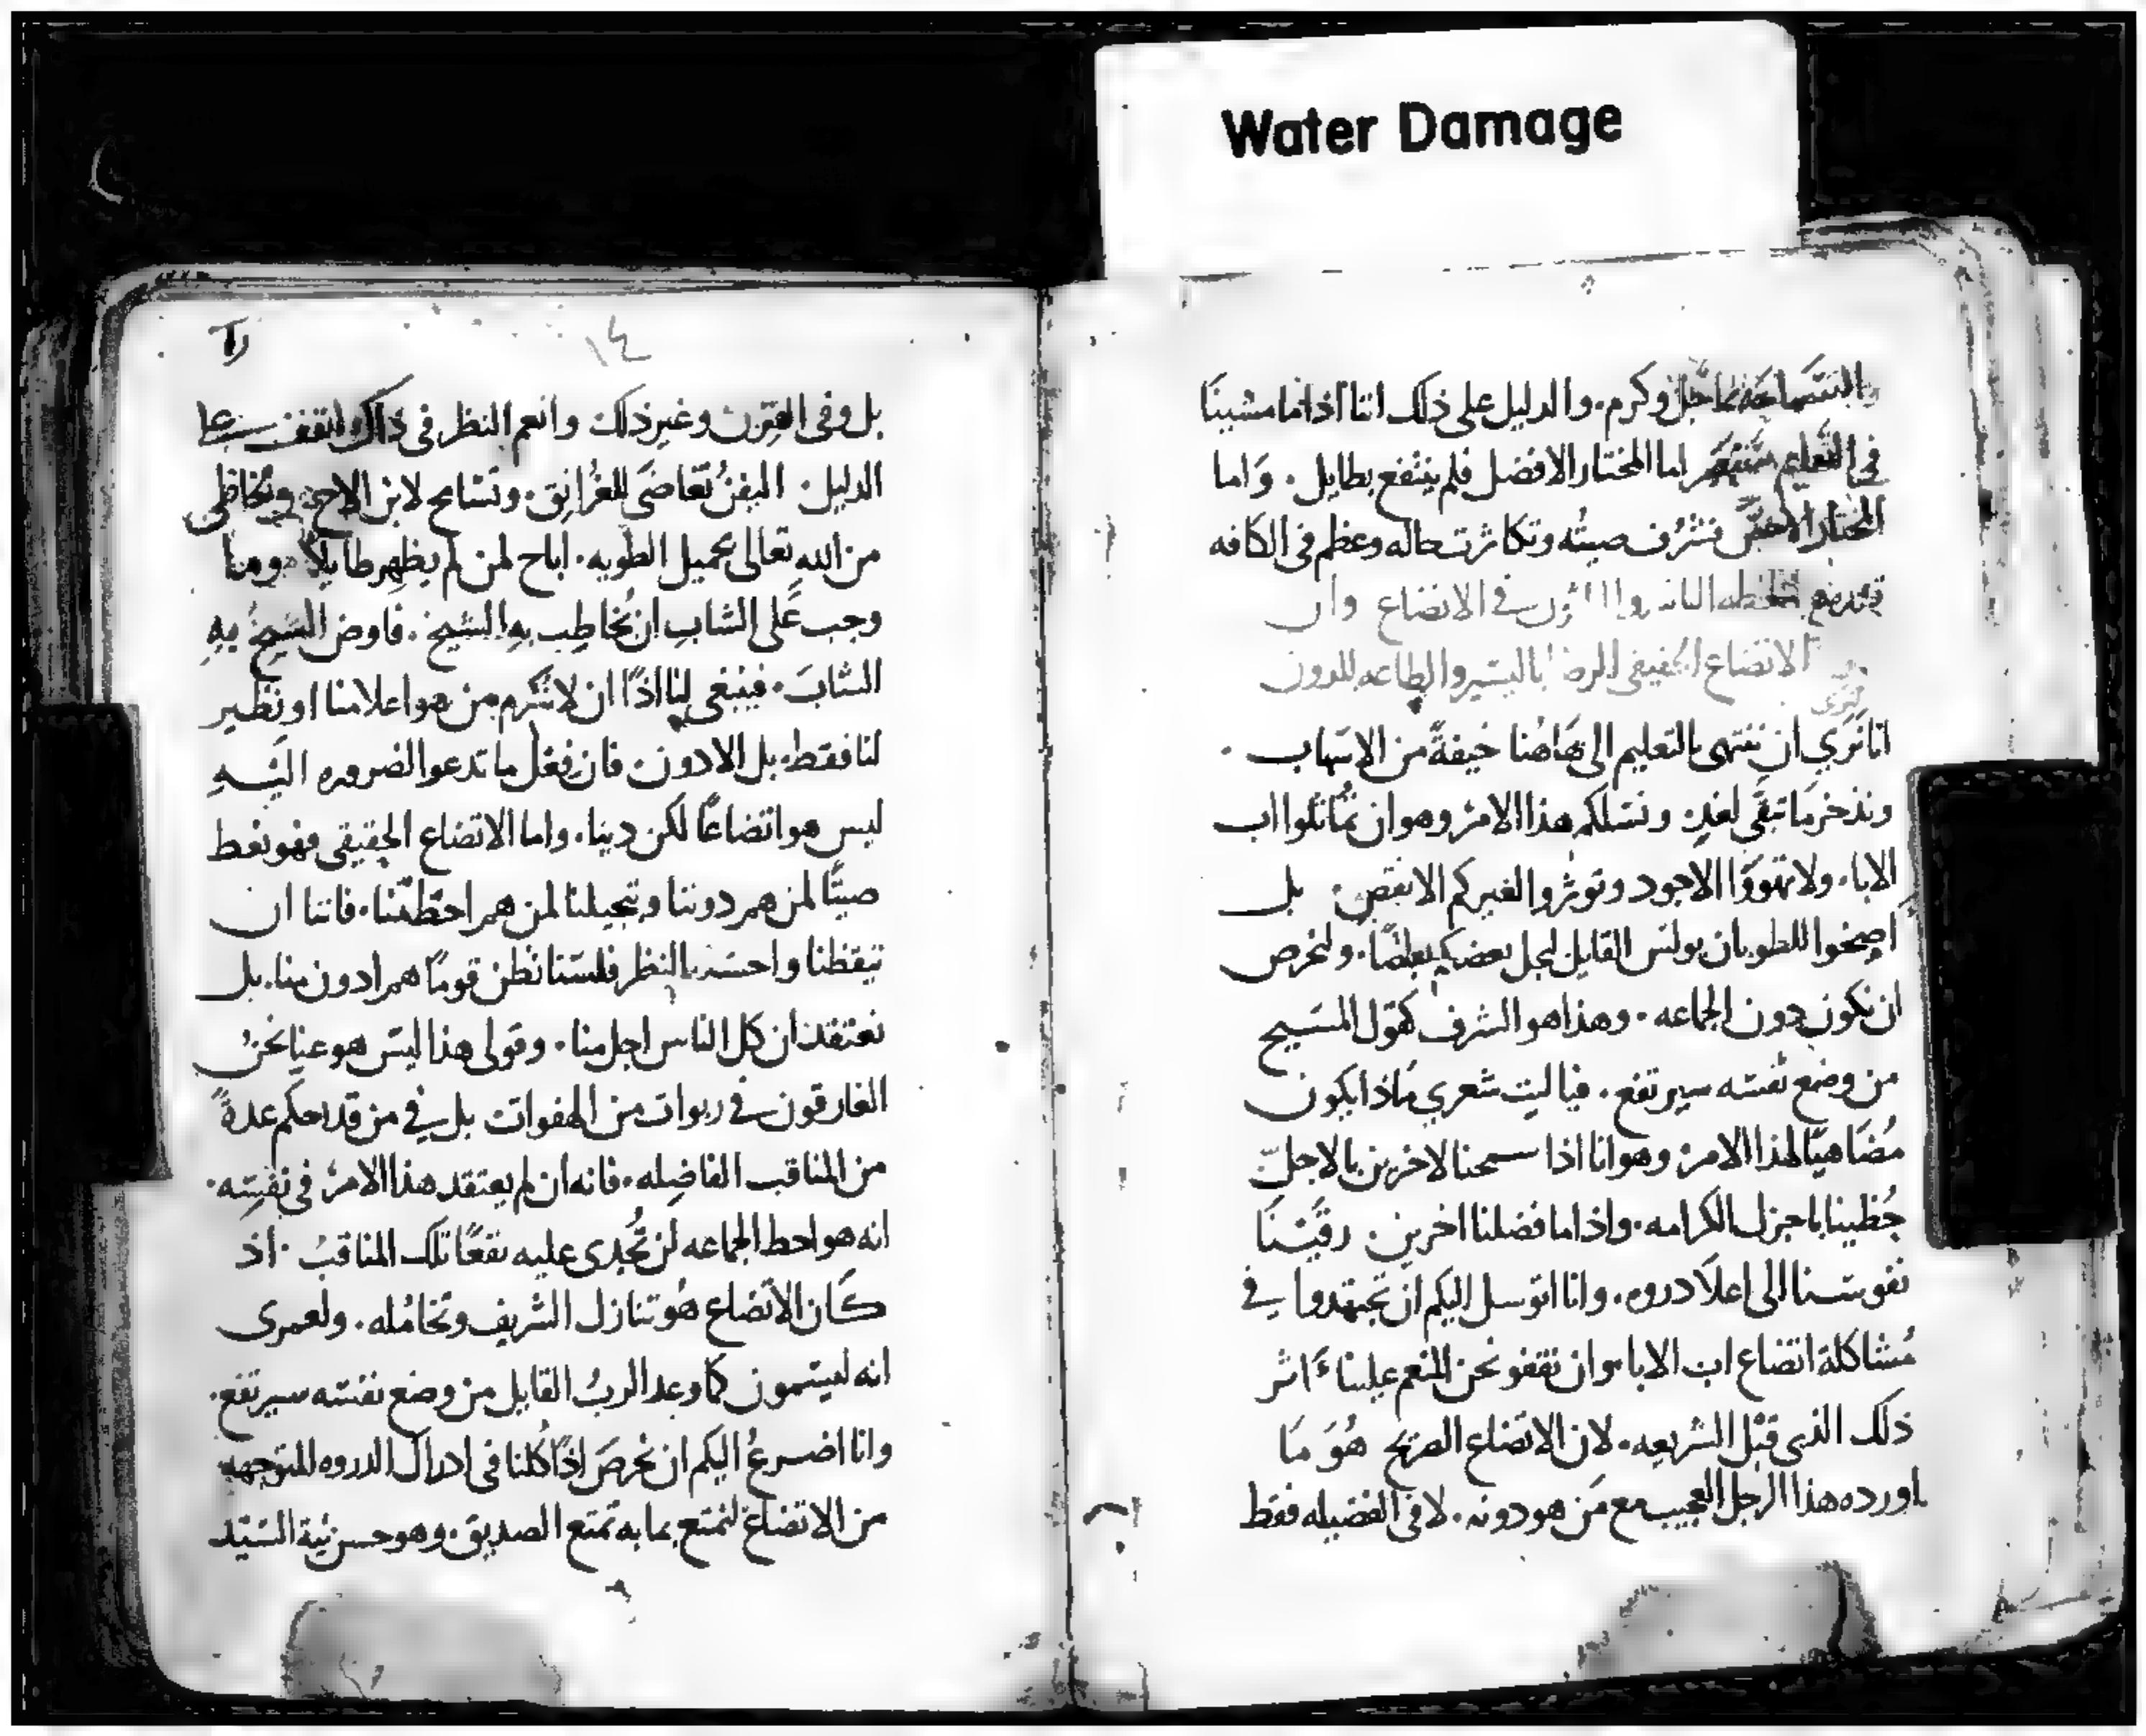 Water Damage
وكرم. والدليل على ذلك اننا اذا ما مشينا
في التعليم اما المختار الافضل فلم ينتفع بطايل. وَاما
المختار الاخسّ فشرُف صيتُه وتكاثرت حاله وعظم في الكافه
في الاتضاع وان
الاتضاع الحقيقي بالیسیر والطاعه للدون
انا نَرَي ان ننتهى بالتعليم الى هَاهُنا خيفةً من الاسَهاب.
ونذخر مَا تبقَى لغدٍ. ونسَلكم هذا الامرُ وهو ان تُماثلوا اب
الابا. ولا تهووَا الاجود وتوثروا لغيركم الانقص. بل
اصيخوا للطوبان بولس القايل ليجل بعضكم بعضًا. ولنحرص
ان نكون دون الجماعه. وهذا هو الشرف كقول المسَيح
من وضع نفسَه سيرتفع. فيا ليت شعري مَاذا يكون
مُضَاهيًا لهذا الامر وهو انا اذا سمحنا لاخرين بالاجلّ
حُظينا باجزل الكرامه. واذا ما فضلنا اخرين رقَّيْنَا
نفوسَنا الى اعلَا دروه. وانا اتوسل اليكم ان تجتهدوا في
مُشاكلة اتضاع اب الابا. وان نقفو نحن المنعم علينا اثر
ذلك الذي قبْل الشريعه. لان الاتضاع الصريح هُوَ مَا
اورده هذا الرجل العجيب مع مَن هو دونه. لا في الفضيله فقط
١٤
بل وفى وغير ذلك وانعم النظر فى ذلك لتقف على
الدليل. اليفنُ تغاضَى للغرانِق. وتسَامح لابن الاخ
من الله تعالى بجميل الطويه. اباح لمن لم يظهر طايلًا. ومَا
وجب عَلى الشابِ ان يُخاطِب بهِ الشيخ. فاوض الشيخُ بهِ
الشابَ. فينبغي لنا اذًا ان لا نُكرم من هو اعلا منا او نظير
لنا فقط. بل الادون. فان فعْل ما تدعوا الضروره اليَهِ
ليس هو اتضاعًا لكن دينا. واما الاتضاع الحقيقي فهو نعط
صيتًا لمن هم دوننا وتبجيلنا لمن هم احَطّ منّا. فاننا ان
تيقظنا واحسَنا النظر فلسَنا نظن قومًا هم ادون منا. بل
نعتقد ان كل الناس اجل منا. وقولى هذا ليسَ هو عنا نحنُ
الغارقون في ربوات من الهفوات بل في من قد احكم عدةً
من المناقب الفاضِله. فانه ان لم يعتقد هذا الامرُ في نفسِه.
انه هو احط الجماعه لن تُجدى عليه نفعًا تلك المناقبُ. اذ
كَان الاتضاع هُو تنازل الشريف وتخامُله. ولعمرى
انه ليسَمون كما وعد الربُ القايل من وضع نفسَه سيرتفع.
وانا اضرعُ اليكم ان نحرصَ اذًا كُلنا في ادراك الدروه المتوجهه
من الاتضاع لنتمتع بما به تمتع الصديق. وهو حسن نيَة السَيّد